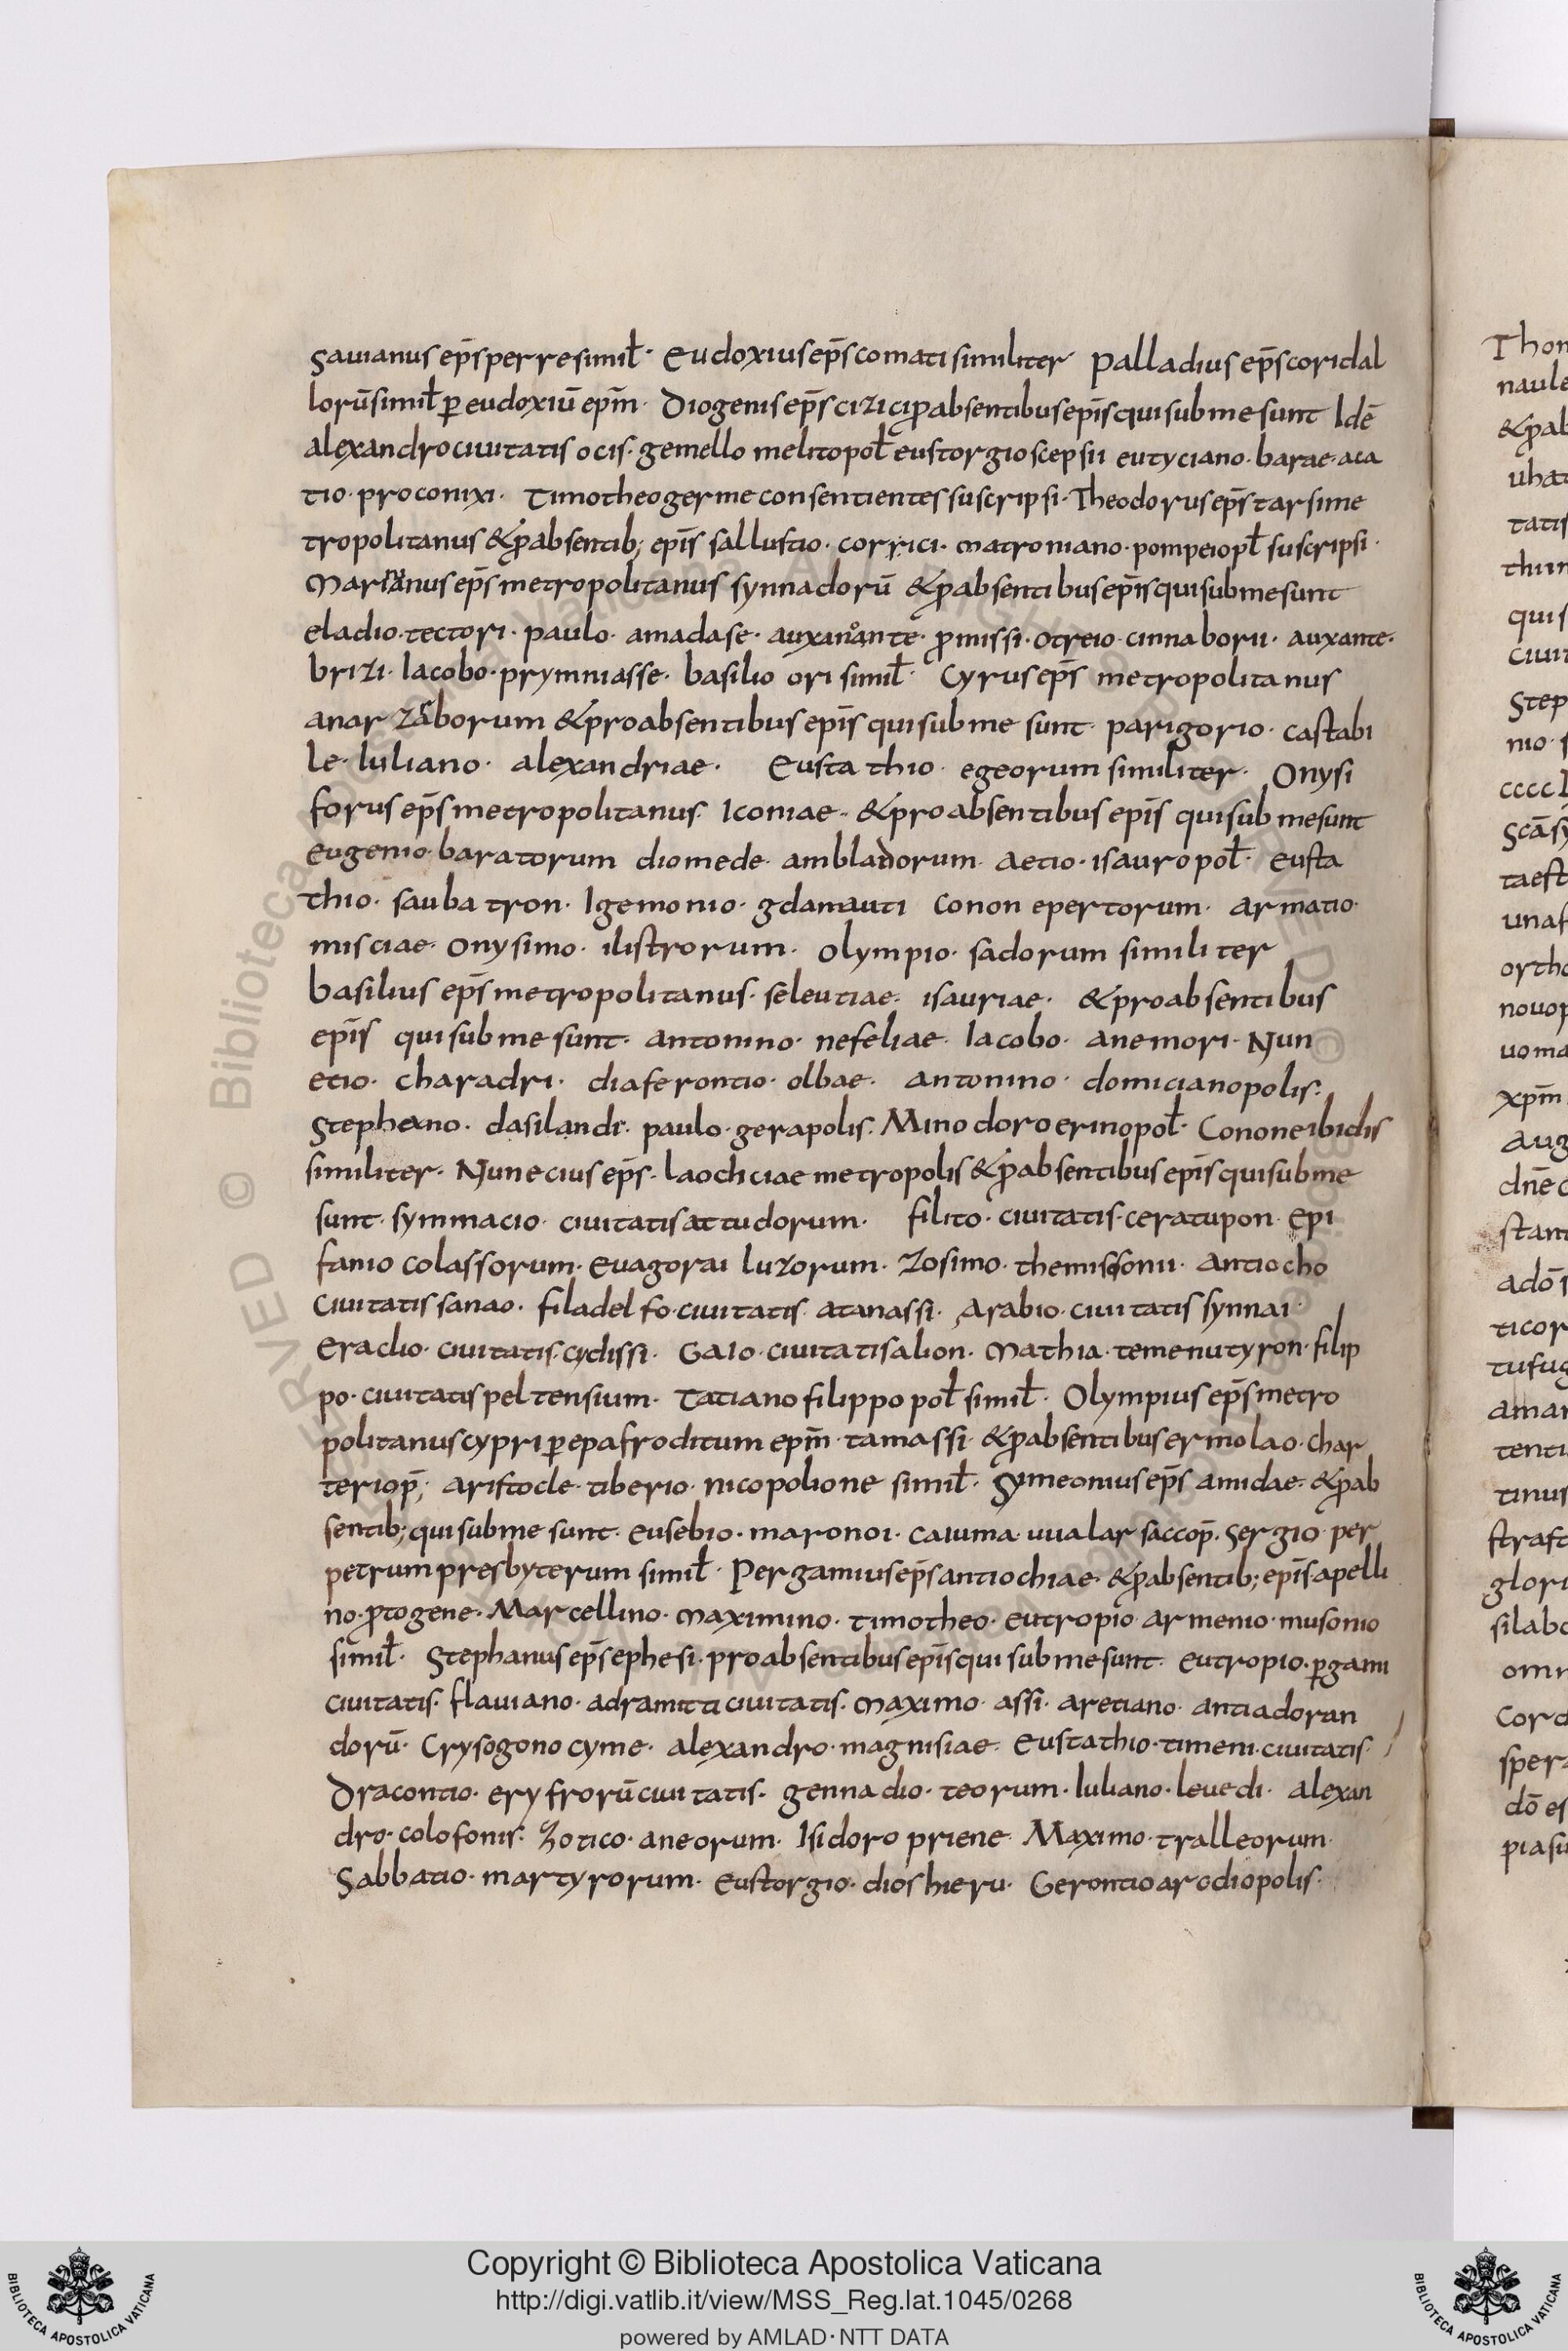 Sauianus ep̅s perre simil̅· Eudoxius ep̅s comati similiter Palladius ep̅s coridal
lorū simil̅ ꝑ eudoxiū epm̅· Diogenis ep̅s cizici ꝓ absentibus epīs qui sub me sunt Idē
alexandro ciuitatis ocis· gemello melitopol̅ eustorgio scepsii eutyciano· barae· aca
tio· proconixi· Timotheo germe consentientes suscripsi· Theodorus ep̅s tarsi me
tropolitanus & ꝓ absentib; epīs sallustio· corrici· matroniano· pompeiopl̅ suscripsi·
ep̅s metropolitanus synnadorū & ꝓ absentibus epīs qui sub me sunt
eladio· tectori· paulo· amadase· ꝓmissi· otreio· cinnaborii· auxante·
brizi· Iacobo· prymniasse· basilio ori simil̅· Cyrus ep̅s metropolitanus
anarzaborum & pro absentibus epīs qui sub me sunt· parigorio· castabi
le· Iuliano· alexandriae· Eustathio· egeorum similiter· Onysi
forus ep̅s metropolitanus· Iconiae· & pro absentibus epīs qui sub me sunt
eugenio· baratorum diomede· ambladorum· aetio· isauropol̅· eusta
thio· saubatron· Igemonio· gdamauti Conon epertorum· armatio·
misciae· onysimo· ilistrorum· olympio· sadorum similiter
basilius ep̅s metropolitanus· seleutiae· isauriae· & pro absentibus
epīs qui sub me sunt· antonino· nefeliae· Iacobo· anemori· Nun
etio· charadri· diaferontio· olbae· antonino· domicianopolis·
Stephano· dasilandi· paulo· gerapolis· Minodoro erinopol̅· Conone ibidis
similiter· Nunecius ep̅s· laodiciae metropolis & ꝓ absentibus epīs qui sub me
sunt· symmacio· ciuitatis attudorum· filito· ciuitatis· ceratupon· epi
fanio colassorum· euagorai luzorum· zosimo· themissonii· antiocho
ciuitatis sanao· filadelfo· ciuitatis· atanassi· Arabio· ciuitatis synnai·
eraclio· ciuitatis· cydissi· Gaio· ciuitatis alion· Mathia· temenutyron· filip
po· ciuitatis peltensium· tatiano filippopol̅ simil̅· Olympius ep̅s metro
politanus cypri ꝑ epafroditum epm̅· tamassi· & ꝓ absentibus ermolao· char
teriop̅; aristocle· tiberio· nicopolione simil̅· Symeonius ep̅s amidae· & ꝓ ab
sentib; qui sub me sunt· eusebio· maronoi· caiuma· uualar saccop̅· sergio· per
petrum presbyterum simil̅· Pergamius ep̅s antiochiae· & ꝓ absentib; epīs· apelli
no· ꝓtogene· Marcellino· maximino· timotheo· eutropio· armenio· musonio
simil̅· Stephanus ep̅s ephesi· pro absentibus epīs qui sub me sunt· eutropio· ꝑgami
ciuitatis· flauiano· adramitti ciuitatis· maximo· assi· aretiano· antiadoran
dorū· Crysogono cyme· alexandro· magnisiae· eustathio· timeni· ciuitatis·
Dracontio· eryfrorū ciuitatis· gennadio· teorum· Iuliano· leuedi· alexan
dro· colofonis· Zotico· aneorum· Isidoro priene· Maximo· tralleorum·
Sabbatio· martyrorum· eustorgio· dios hieru· Gerontio arcdiopolis·
Copyright © Biblioteca Apostolica Vaticana
http://digi.vatlib.it/view/MSS_Reg.lat.1045/0268
powered by AMLAD · NTT DATA
BIBLIOTECA APOSTOLICA VATICANA
BIBLIOTECA APOSTOLICA VATICANA